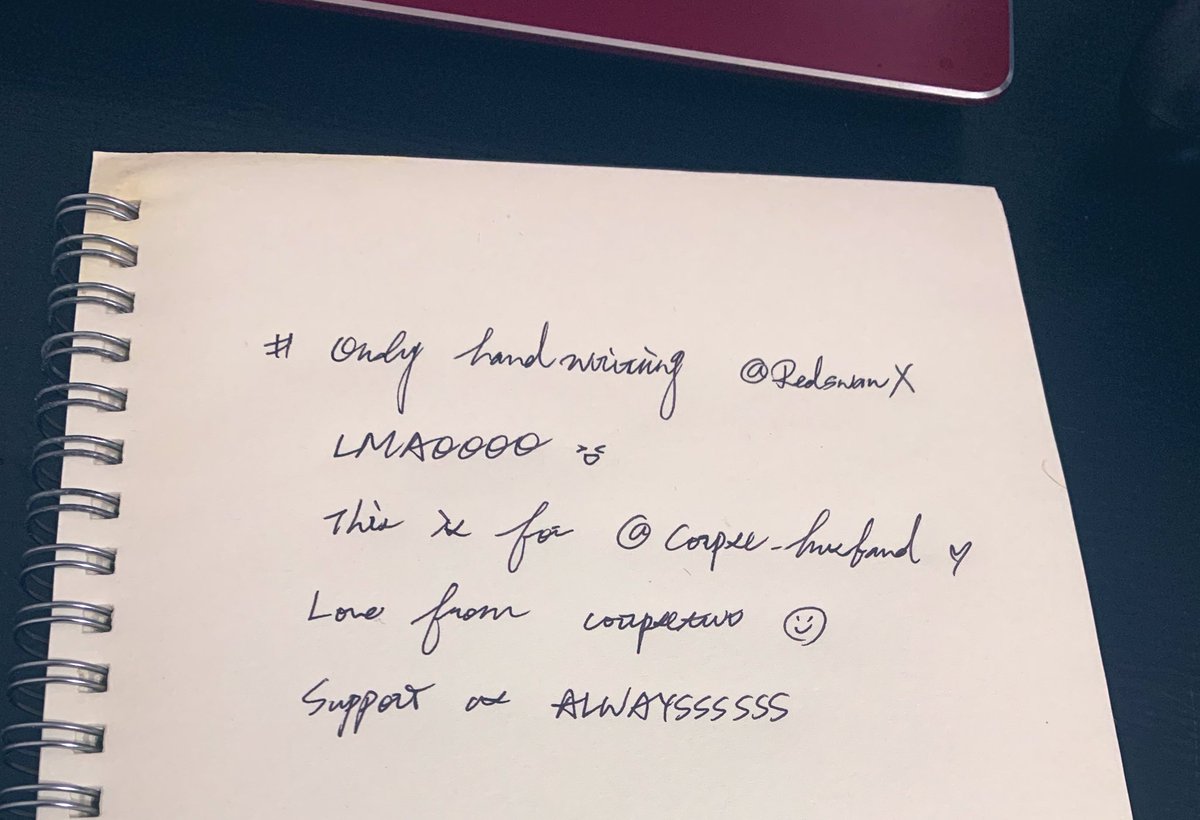 # Only handwriting @RedswanX
LMAOOOO
This is for @corpse_husband
Love from corpsetwo
Support as ALWAYSSSSSS